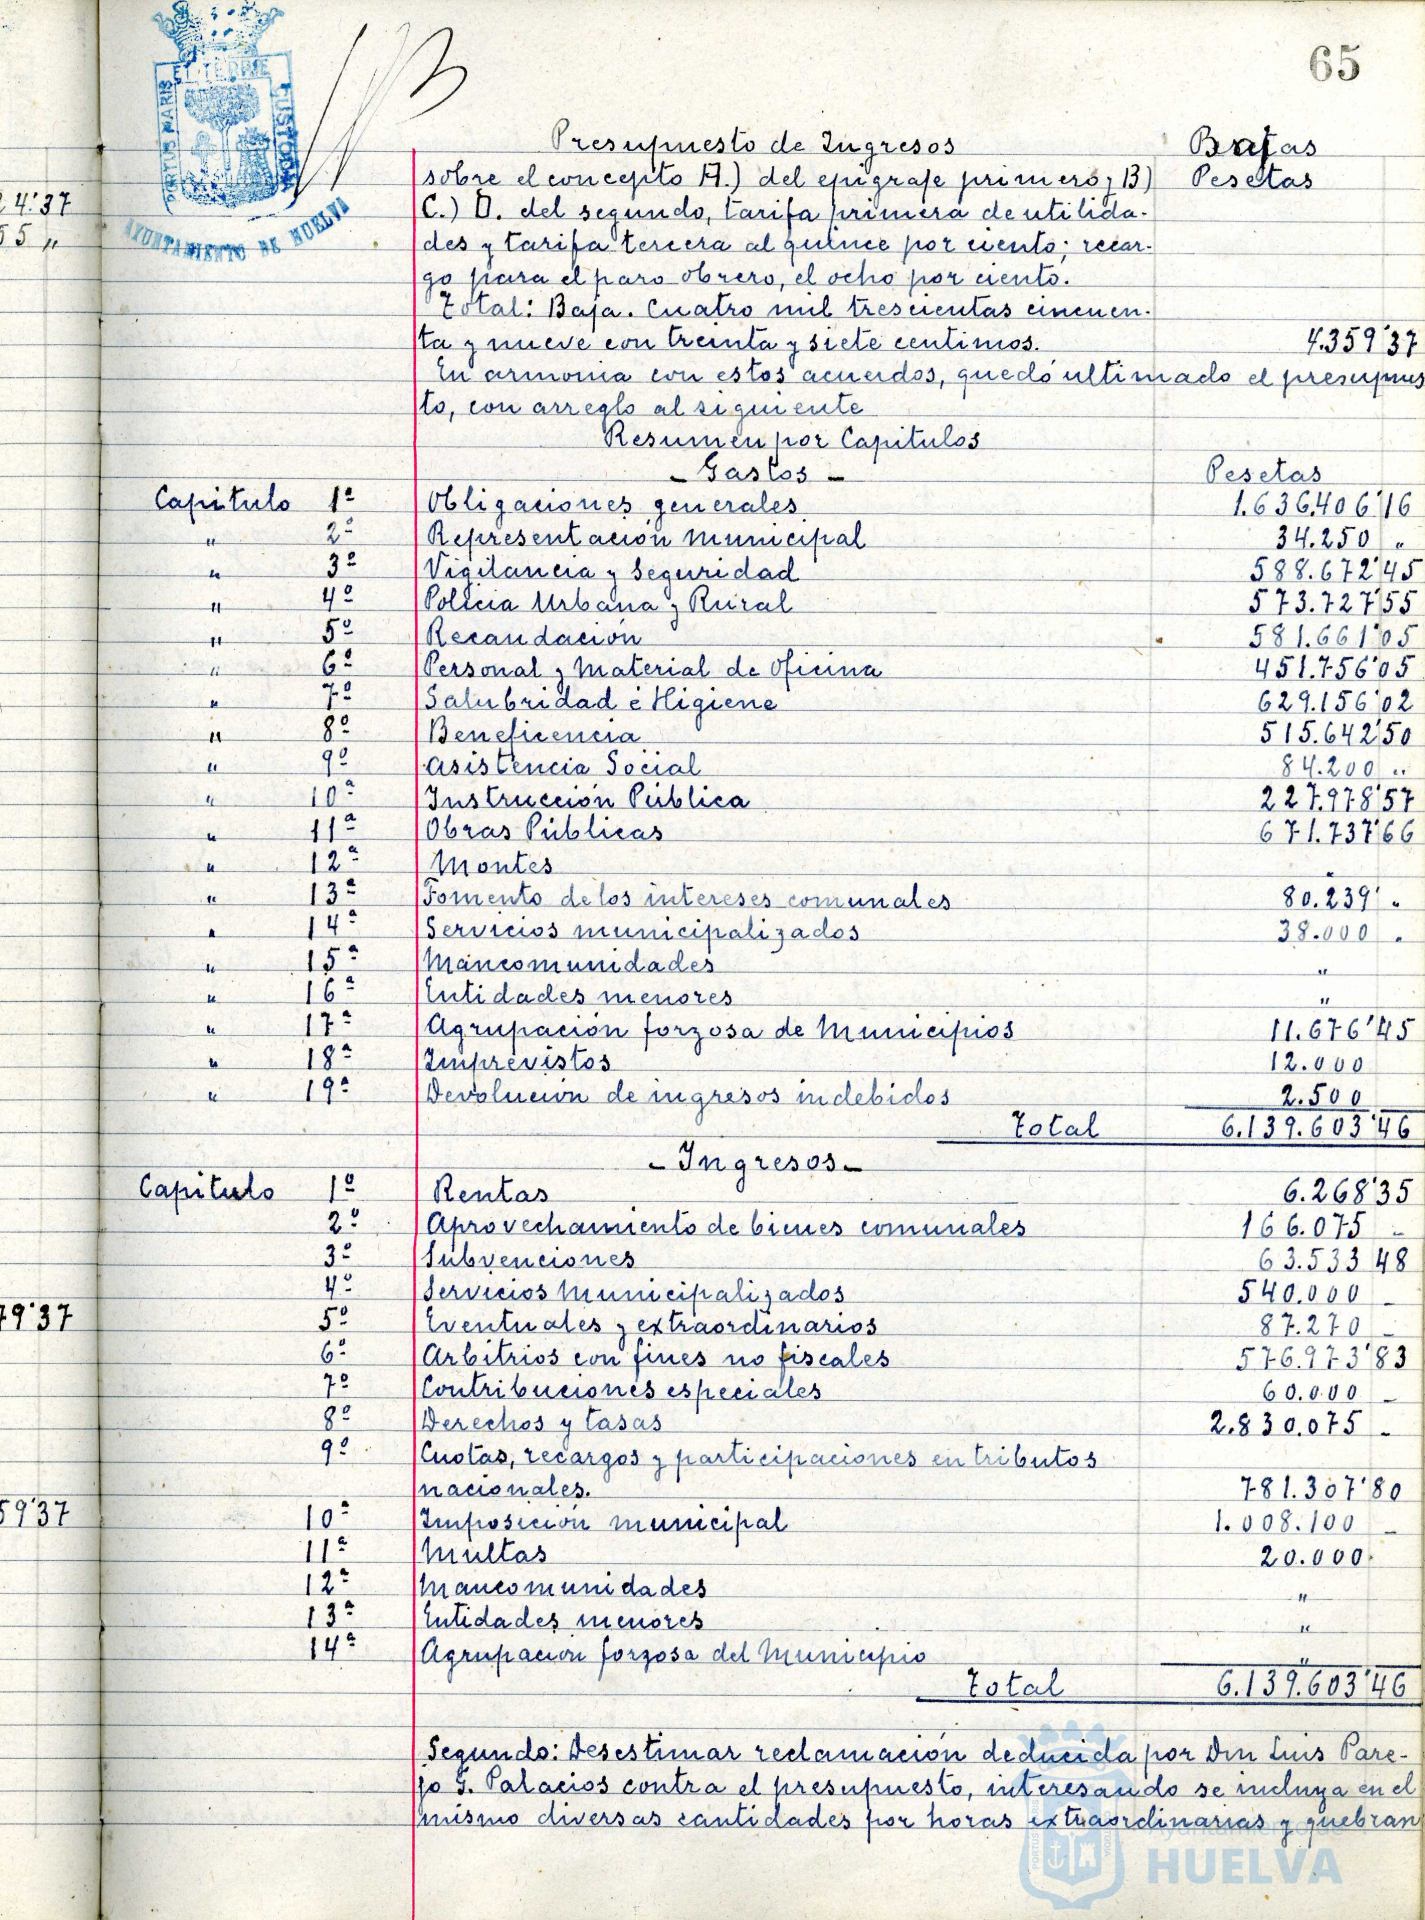 65
PORTUS MARIS ET TERRÆ CUSTODIA
AYUNTAMIENTO DE HUELVA
Presupuesto de Ingresos Bajas
sobre el concepto A.) del epigrafe primero y B) Pesetas
24'37
C.) D. del segundo, tarifa primera de utilida-
55 "
des y tarifa tercera al quince por ciento; recar-
go para el paro obrero, el ocho por ciento.
Total: Baja. Cuatro mil trescientas cincuen-
ta y nueve con treinta y siete centimos. 4.359'37
En armonia con estos acuerdos, quedó ultimado el presupues
to, con arreglo al siguiente
Resumen por Capitulos
- Gastos - Pesetas
Capitulo 1º Obligaciones generales 1.636.406'16
" 2º Representación municipal 34.250 "
" 3º Vigilancia y Seguridad 588.672'45
" 4º Policia Urbana y Rural 573.727'55
" 5º Recaudación 581.661'05
" 6º Personal y Material de oficina 451.756'05
" 7º Salubridad é Higiene 629.156'02
" 8º Beneficencia 515.642'50
" 9º Asistencia Social 84.200 "
" 10ª Instrucción Pública 227.978'57
" 11ª Obras Públicas 671.737'66
" 12ª Montes "
" 13ª Fomento de los intereses comunales 80.239' "
" 14ª Servicios municipalizados 38.000 "
" 15ª Mancomunidades "
" 16ª Entidades menores "
" 17ª Agrupación forzosa de Municipios 11.676'45
" 18ª Imprevistos 12.000
" 19ª Devolución de ingresos indebidos 2.500
Total 6.139.603'46
- Ingresos -
Capitulo 1º Rentas 6.268'35
2º Aprovechamiento de bienes comunales 166.075 -
3º Subvenciones 63.533 48
4º Servicios Municipalizados 540.000 -
79'37
5º Eventuales y extraordinarios 87.270 -
6º Arbitrios con fines no fiscales 576.973'83
7º Contribuciones especiales 60.000 -
8º Derechos y tasas 2.830.075 -
9º Cuotas, recargos y participaciones en tributos
nacionales. 781.307'80
59'37
10ª Imposición municipal 1.008.100 -
11ª Multas 20.000
12ª Mancomunidades "
13ª Entidades menores "
14ª Agrupación forzosa del Municipio "
Total 6.139.603'46
Segundo: Desestimar reclamación deducida por Don Luis Pare-
jo G. Palacios contra el presupuesto, interesando se incluya en el
mismo diversas cantidades por horas extraordinarias y quebran
Ayuntamiento de
HUELVA